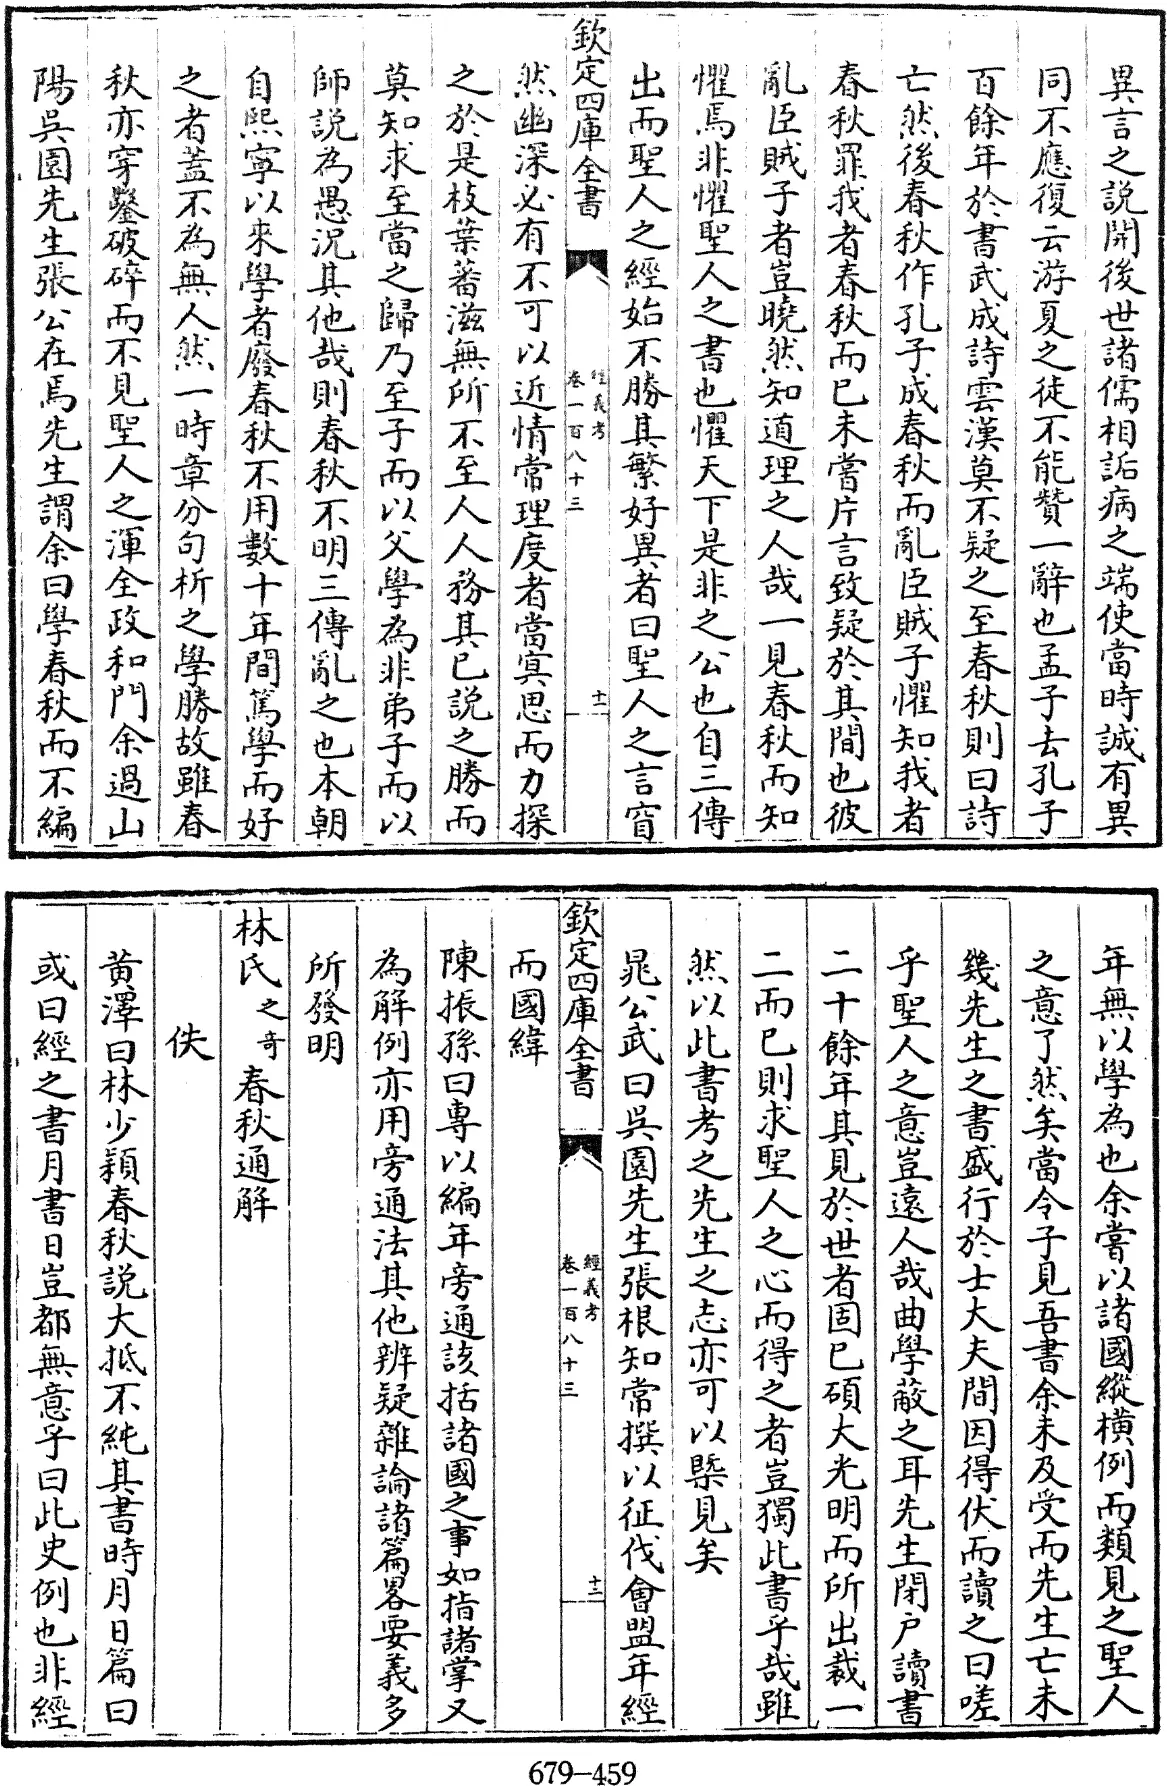 異言之說開後世諸儒相詬病之端使當時誠有異
同不應復云游夏之徒不能贊一辭也孟子去孔子
百餘年於書武成詩雲漢莫不疑之至春秋則曰詩
亡然後春秋作孔子成春秋而亂臣賊子懼知我者
春秋罪我者春秋而已未嘗片言致疑於其間也彼
亂臣賊子者豈曉然知道理之人哉一見春秋而知
懼焉非懼聖人之書也懼天下是非之公也自三傳
出而聖人之經始不勝其繁好異者曰聖人之言窅
欽定四庫全書
經義考
卷一百八十三
十一
然幽深必有不可以近情常理度者當冥思而力探
之於是枝葉蕃滋無所不至人人務其已說之勝而
莫知求至當之歸乃至子而以父學為非弟子而以
師說為愚況其他哉則春秋不明三傳亂之也本朝
自熙寧以來學者廢春秋不用數十年間篤學而好
之者蓋不為無人然一時章分句析之學勝故雖春
秋亦穿鑿破碎而不見聖人之渾全政和門余過山
陽吳園先生張公在焉先生謂余曰學春秋而不編
年無以學為也余嘗以諸國縱橫例而類見之聖人
之意了然矣當令子見吾書余未及受而先生亡未
幾先生之書盛行於士大夫間因得伏而讀之曰嗟
乎聖人之意豈遠人哉曲學蔽之耳先生閉戶讀書
二十餘年其見於世者固已碩大光明而所出裁一
二而已則求聖人之心而得之者豈獨此書乎哉雖
然以此書考之先生之志亦可以槩見矣
晁公武曰吳園先生張根知常撰以征伐會盟年經
欽定四庫全書
經義考
卷一百八十三
十二
而國緯
陳振孫曰專以編年旁通該括諸國之事如指諸掌又
為解例亦用旁通法其他辨疑雜論諸篇畧要義多
所發明
林氏之奇春秋通解
佚
黃澤曰林少穎春秋說大抵不純其書時月日篇曰
或曰經之書月書日豈都無意乎曰此史例也非經
679-459